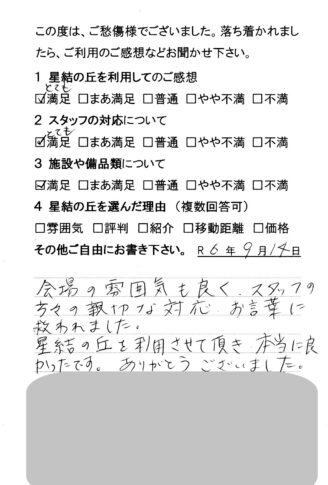 この度は、ご愁傷様でございました。落ち着かれまし
たら、ご利用のご感想などお聞かせ下さい。
1 星結の丘を利用してのご感想
とても
☑満足 □まあ満足 □普通 □やや不満 □不満
2 スタッフの対応について
とても
☑満足 □まあ満足 □普通 □やや不満 □不満
3 施設や備品類について
☑満足 □まあ満足 □普通 □やや不満 □不満
4 星結の丘を選んだ理由（複数回答可）
□雰囲気 □評判 □紹介 □移動距離 □価格
その他ご自由にお書き下さい。 R6年9月14日
会場の雰囲気も良く、スタッフの
方々の親切な対応、お言葉に
救われました。
星結の丘を利用させて頂き 本当に良
かったです。ありがとうございました。